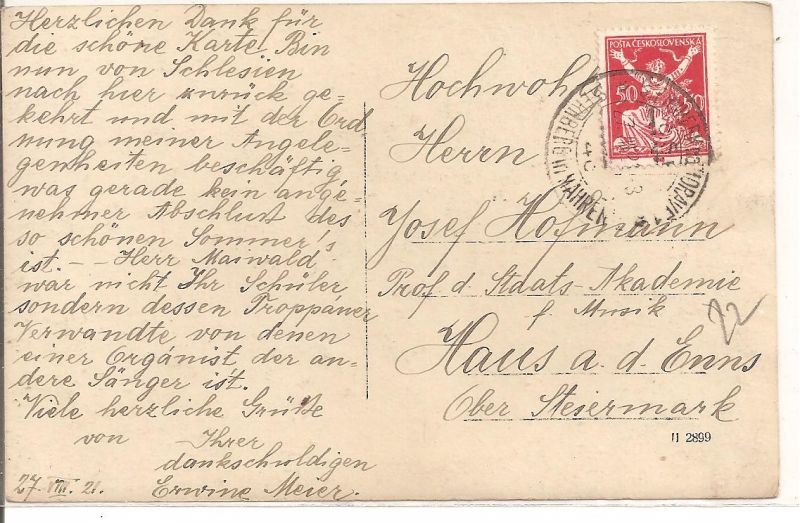 Herzlichen Dank für
die schöne Karte! Bin
nun von Schlesien
nach hier zurück ge-
kehrt und mit der Ord
nung meiner Angele-
genheiten beschäftigt,
was gerade kein ange-
nehmer Abschluß des
so schönen Sommer's
ist. — Herr Maiwald
war nicht Ihr Schüler
sondern dessen Troppauer
Verwandte von denen
einer Organist der an-
dere Sänger ist.
Viele herzliche Grüße
von — Ihrer
dankschuldigen
27. VIII. 21. Erwine Meier.
POŠTA ČESKOSLOVENSKÁ
50 50
Hochwohl
Herrn
Josef Hofmann
Prof d Staats-Akademie
f Musik
Haus a. d. Enns
Ober Steiermark
22
11 2899